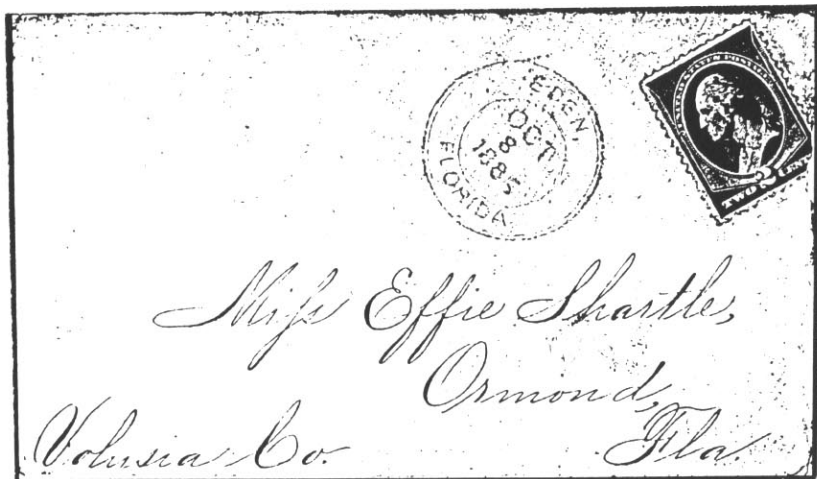 EDEN,
OCT
8
1885
FLORIDA
UNITED STATES POSTAGE
2
TWO CENTS
Miss Effie Shartle,
Ormond,
Volusia Co. Fla.